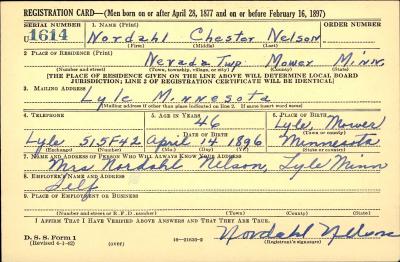 REGISTRATION CARD—(Men born on or after April 28, 1877 and on or before February 16, 1897)
SERIAL NUMBER 1. NAME (Print) ORDER NUMBER
U 1614 Nordahl Chester Nelson
(First) (Middle) (Last)
2. PLACE OF RESIDENCE (Print)
Nevada Twp. Mower Minn.
(Number and street) (Town, township, village, or city) (County) (State)
[THE PLACE OF RESIDENCE GIVEN ON THE LINE ABOVE WILL DETERMINE LOCAL BOARD
JURISDICTION; LINE 2 OF REGISTRATION CERTIFICATE WILL BE IDENTICAL]
3. MAILING ADDRESS
Lyle Minnesota
[Mailing address if other than place indicated on line 2. If same insert word same]
4. TELEPHONE 5. AGE IN YEARS 6. PLACE OF BIRTH
46 Lyle, Mower
DATE OF BIRTH (Town or county)
Lyle 515F42 April 14 1896 Minnesota
(Exchange) (Number) (Mo.) (Day) (Yr.) (State or country)
7. NAME AND ADDRESS OF PERSON WHO WILL ALWAYS KNOW YOUR ADDRESS
Mrs Nordahl Nelson, Lyle Minn
8. EMPLOYER'S NAME AND ADDRESS
Self
9. PLACE OF EMPLOYMENT OR BUSINESS
(Number and street or R. F. D. number) (Town) (County) (State)
I AFFIRM THAT I HAVE VERIFIED ABOVE ANSWERS AND THAT THEY ARE TRUE.
D. S. S. Form 1 Nordahl Nelson
(Revised 4-1-42) (over) 16—21630-2 (Registrant's signature)